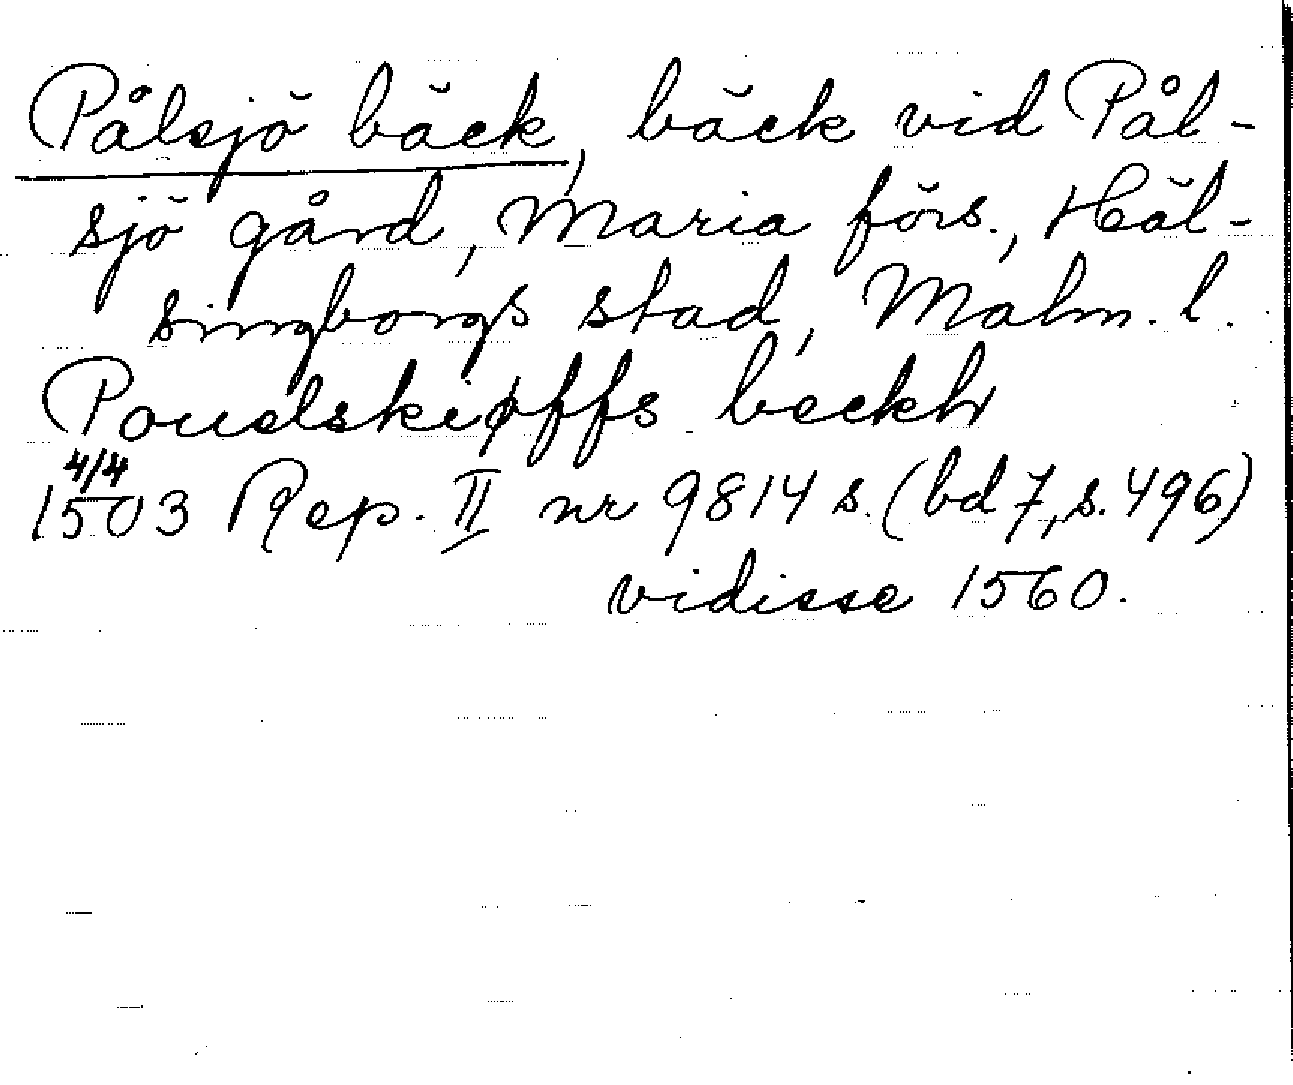 Pålsjö bäck, bäck vid Pål-
sjö gård, Maria förs., Häl-
singborgs stad, Malm. l.
Pouelskiøffs beckh
4/4
1503 Rep. II nr 9814 s. (bd 7, s. 496)
vidisse 1560.